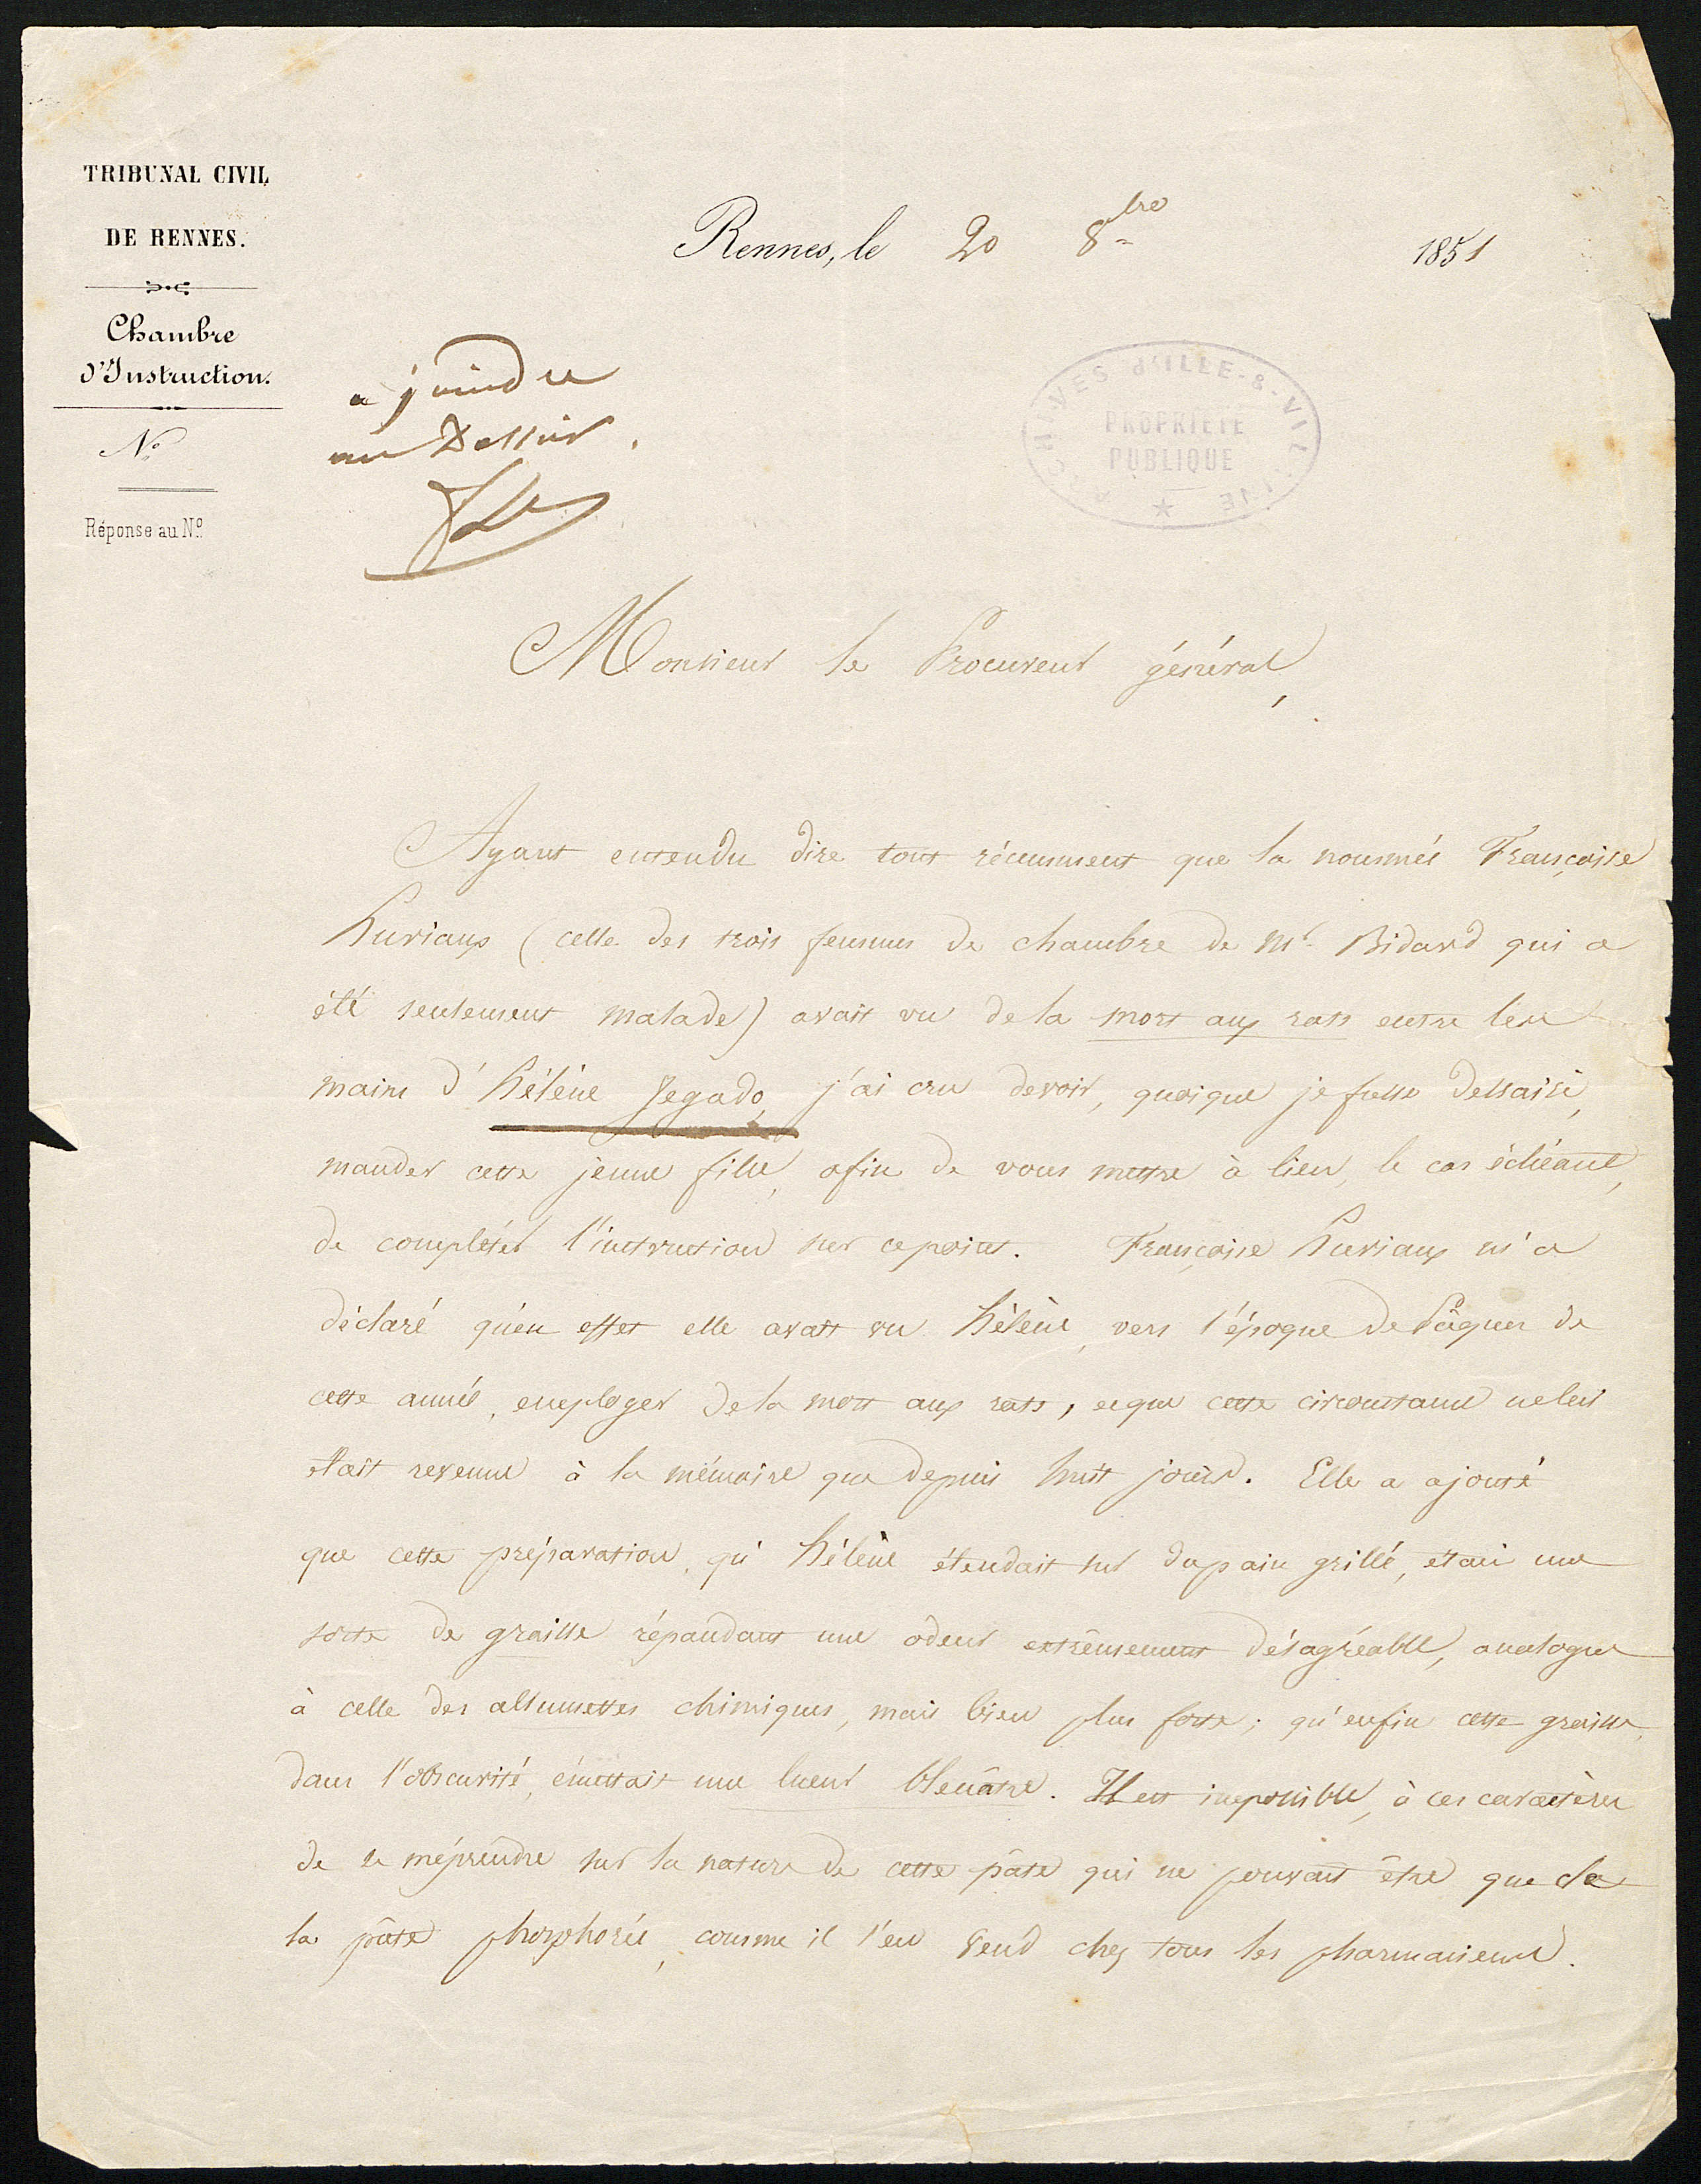 TRIBUNAL CIVIL
DE RENNES.
Chambre
d'Instruction.
N.º
Réponse au N.º
Rennes, le 20 8bre 1851
à joindre
au Dossier.
ARCHIVES d'ILLE-&-VILAINE
PROPRIÉTÉ
PUBLIQUE
Monsieur le Procureur général,
Ayant entendu dire tout récemment que la nommée Françoise
Huriaux (celle des trois femmes de chambre de Mr. Bidard qui a
été seulement malade) avait vu de la mort aux rats entre les
mains d'Hélène Jegado, j'ai cru devoir, quoique je fusse dessaisi,
mander cette jeune fille, afin de vous mettre à lieu, le cas échéant,
de compléter l'instruction sur ce point. Françoise Huriaux m'a
déclaré qu'en effet elle avait vu Hélène, vers l'époque de Pâques de
cette année, employer de la mort aux rats, et que cette circonstance ne lui
était revenue à la mémoire que depuis huit jours. Elle a ajouté
que cette préparation, qu'Hélène étendait sur du pain grillé, était une
sorte de graisse répandant une odeur extrêmement désagréable, analogue
à celle des allumettes chimiques, mais bien plus forte; qu'enfin cette graisse,
dans l'obscurité, émettait une lueur bleuâtre. Il est impossible, à ces caractères
de se méprendre sur la nature de cette pâte qui ne pouvait être que de
la pâte phosphorée, comme il s'en vend chez tous les pharmaciens.